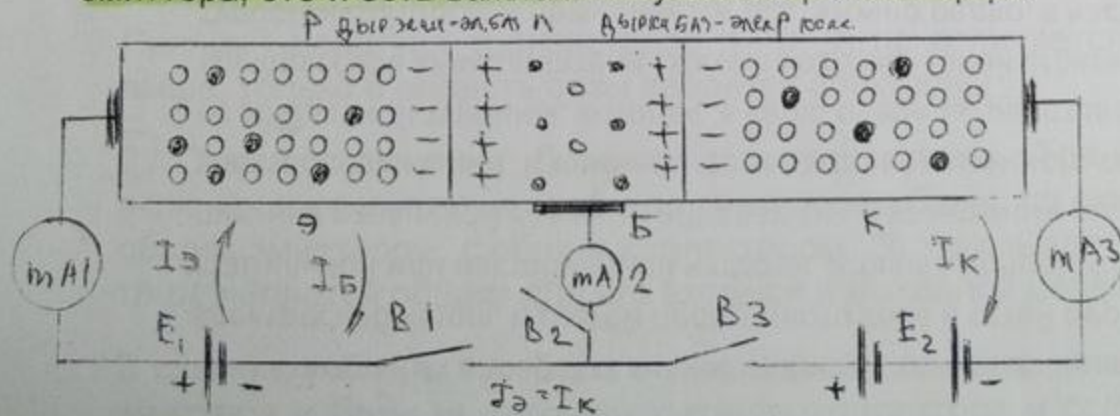 P дырки-эл.баз n дырки баз-элек P колл.
− + + −
− + + −
− + + −
− + + −
Э Б К
mA1 IЭ IБ mA 2 IК mA3
E1 B1 B2 B3 E2
+ − + −
IЭ = IК